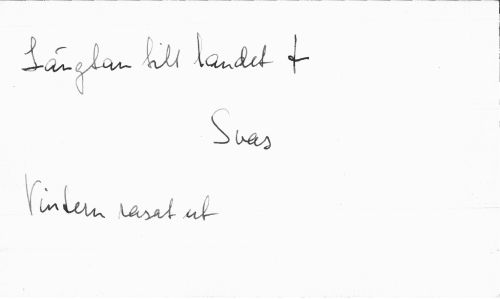 Längtan till landet
Svas
Vintern rasat ut